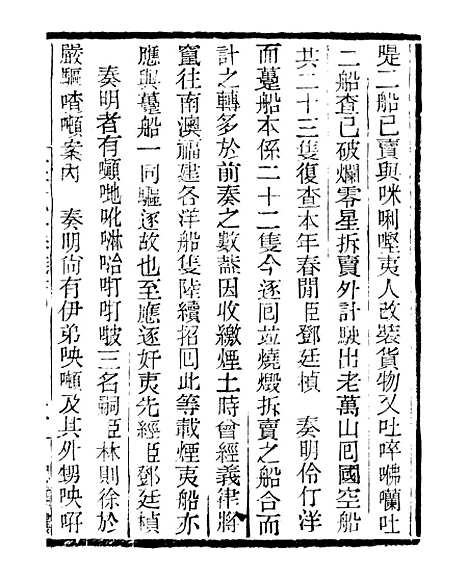 㖷二船已賣與咪唎㗴夷人改裝貨物又吐啐咈囒吐
二船查已破爛零星拆賣外計駛出老萬山囘國空船
共二十三隻復查本年春閒臣鄧廷楨　奏明伶仃洋
而躉船本係二十二隻今逐囘並燒燬拆賣之船合而
計之轉多於前奏之數葢因收繳煙土時曾經義律將
竄往南澳福建各洋船隻陸續招囘此等載煙夷船亦
應與躉船一同驅逐故也至應逐奸夷先經臣鄧廷楨
奏明者有嚬哋吡啉咍叮叮㗞三名嗣臣林則徐於
嚴驅喳嚬案內　奏明尙有伊弟映嚬及其外甥映㖠